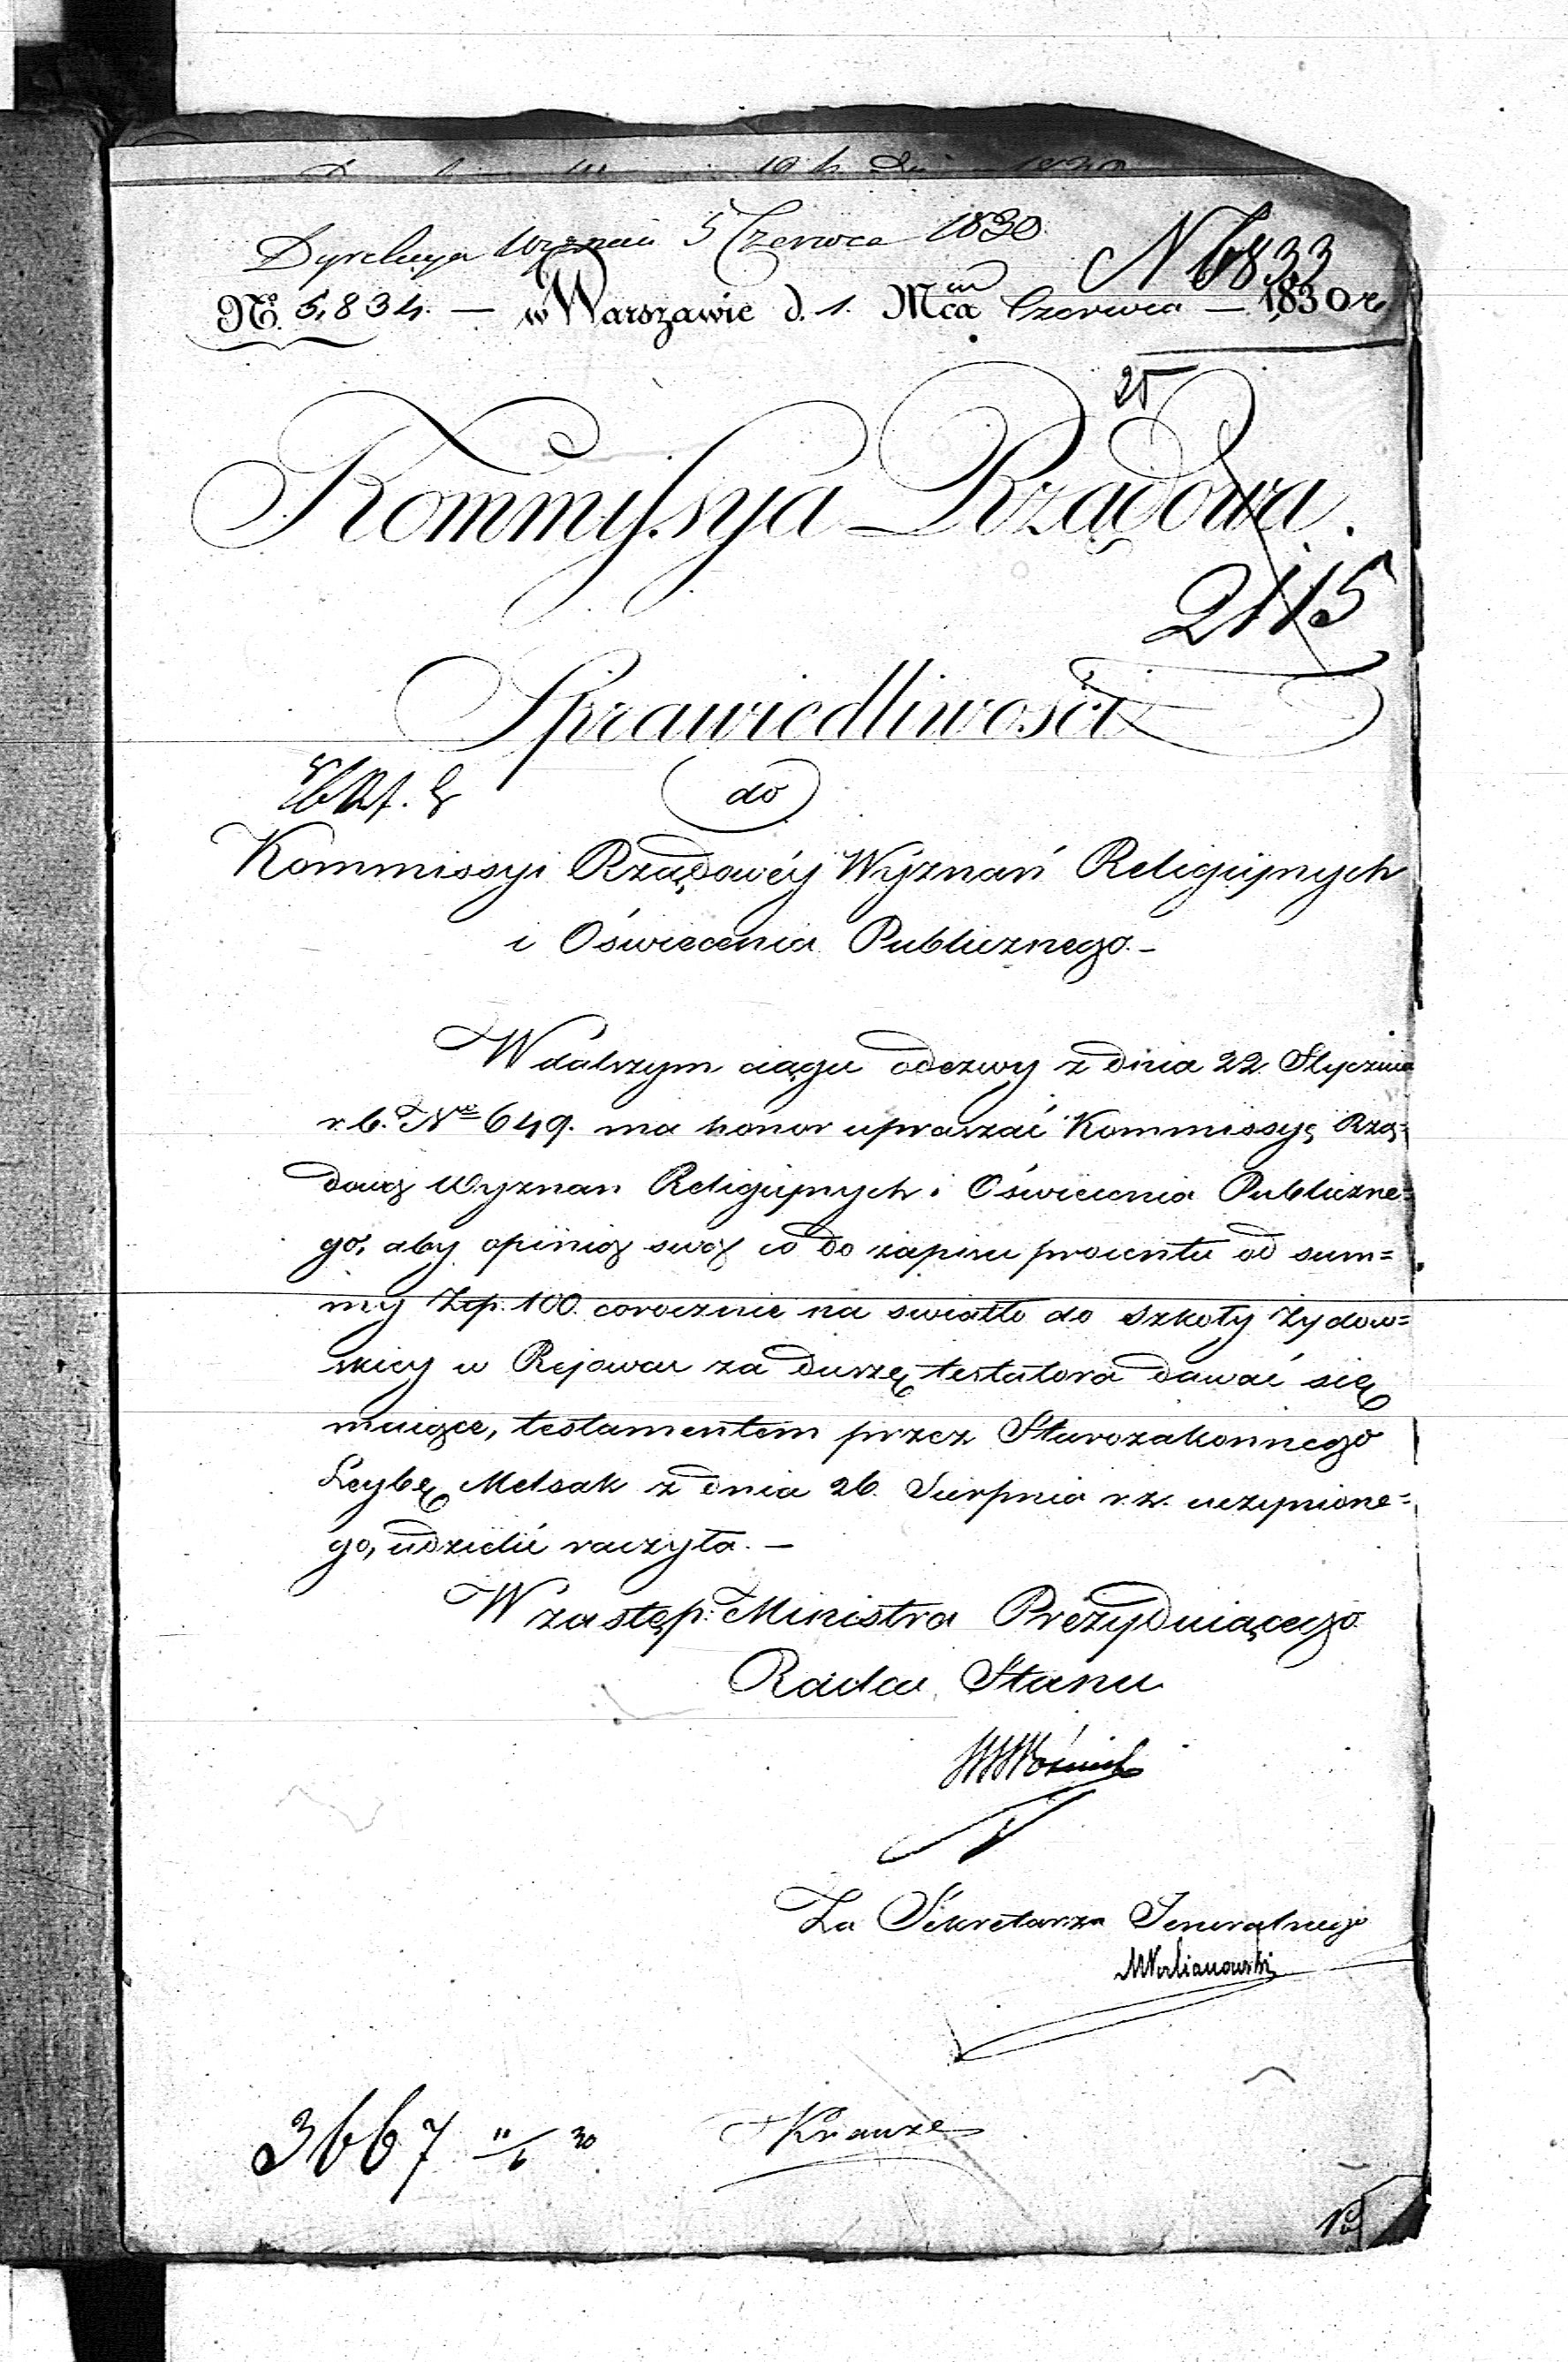 Dyrekcya Wyznań 5 Czerwca 1830
N 6833
No. 5,834. — w Warszawie d. 1. Mca Czerwca — 1830 r.
25
Kommissya Rządowa.
2115
Sprawiedliwości
do
Kommissyi Rządowéy Wyznań Religijnych
i Oświecenia Publicznego.—
W dalszym ciągu odezwy z dnia 22. Stycznia
r. b. Nro 649. ma honor upraszać Kommissyę Rzą=
dową Wyznan Religijnych i Oświecenia Publiczne=
go, aby opinią swą co do zapisu procentu od sum=
my Złp. 100. corocznie na swiatło do szkoły Żydow=
skiey w Rejowcu za duszę testatora dawać się
maiące, testamentem przez Starozakonnego
Leybę Melsak z dnia 26. Sierpnia r. z. uczynione=
go, udzielić raczyła. —
W zastęp: Ministra Prezyduiącego
Radca Stanu
Za Sekretarza Jeneralnego
3667 11/6 30
Krauze